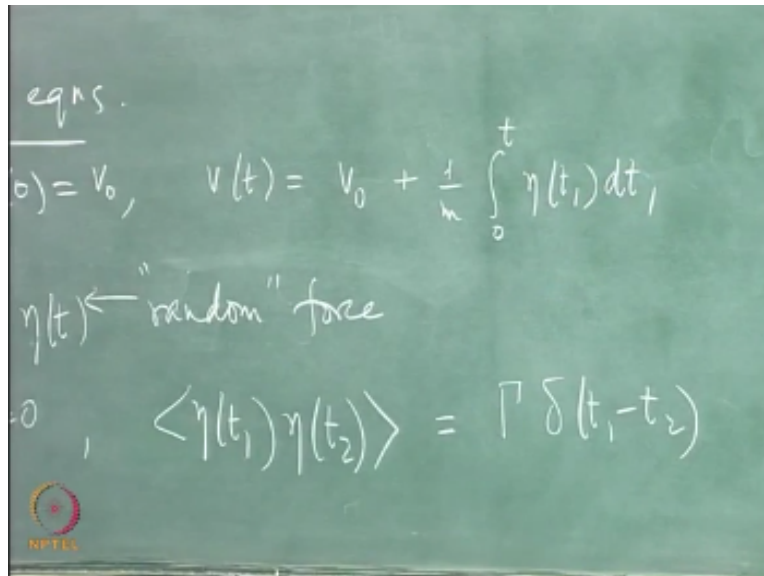 eqns.
(0) = v₀, v(t) = v₀ + 1/m ∫₀ᵗ η(t₁) dt₁
η(t) ← "random" force
=0, <η(t₁) η(t₂)> = Γ δ(t₁-t₂)
NPTEL